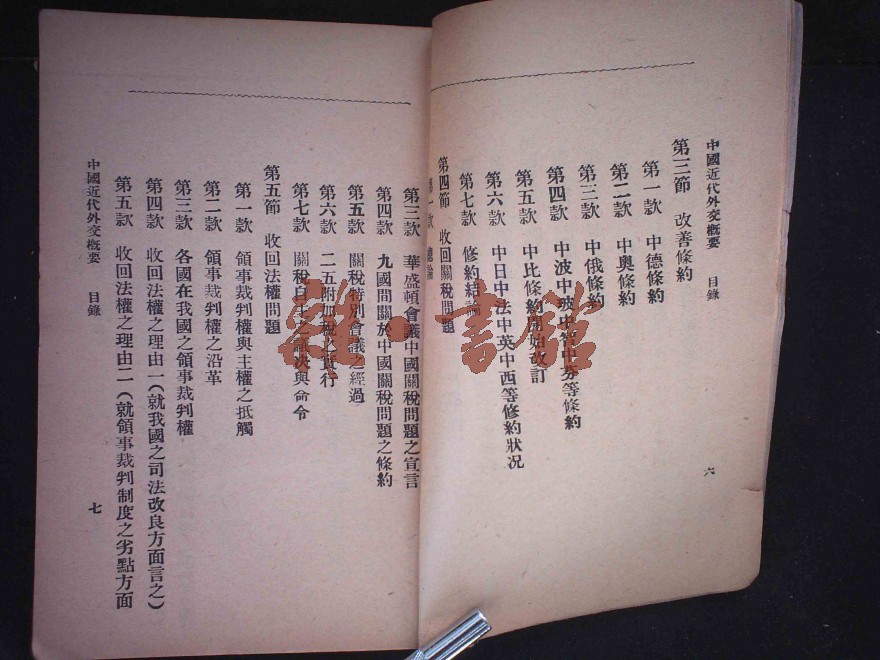 中國近代外交概要　目錄
六
第三節　改善條約
第一款　中德條約
第二款　中奧條約
第三款　中俄條約
第四款　中波中玻中智中芬等條約
第五款　中比條約開始改訂
第六款　中日中法中英中西等修約狀况
第七款　修約結論
第四節　收回關稅問題
第一款　總論
第三款　華盛頓會議中國關稅問題之宣言
第四款　九國間關於中國關稅問題之條約
第五款　關稅特別會議之經過
第六款　二五附加稅之實行
第七款　關稅自主之議決與命令
第五節　收回法權問題
第一款　領事裁判權與主權之抵觸
第二款　領事裁判權之沿革
第三款　各國在我國之領事裁判權
第四款　收回法權之理由一（就我國之司法改良方面言之）
第五款　收回法權之理由二（就領事裁判制度之劣點方面
中國近代外交概要　目錄
七
雜·書館